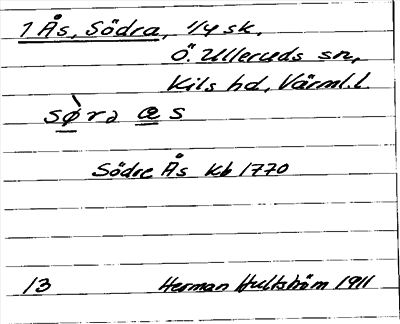 1 Ås, Södra, 1/4 sk.
Ö. Ulleruds sn,
Kils hd, Värml. l.
sø̀rə æs
Södre Ås Kb 1770
13 Herman Hultström 1911